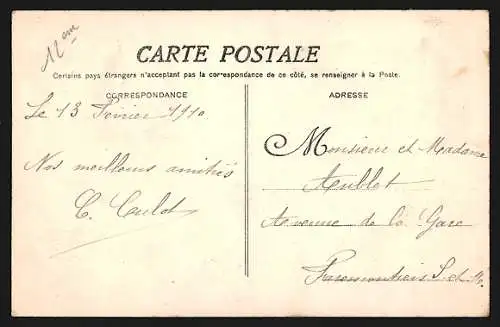 12eme
CARTE POSTALE
Certains pays étrangers n'acceptant pas la correspondance de ce côté, se renseigner à la Poste.
CORRESPONDANCE
Le 13 Février 1910
Nos meilleurs amitiés
C. Culot
ADRESSE
Monsieur et Madame
Aublet
Avenue de la Gare
S. et M.